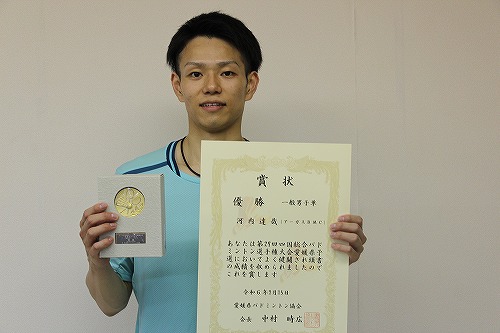 賞状
優勝 一般男子単
河内達哉（アーガスBMC）
あなたは第29回四国総合バド
ミントン選手権大会愛媛県予
選においてよく健闘され頭書
の成績を収められましたので
これを賞します
令和6年7月15日
愛媛県バドミントン協会
会長 中村時広